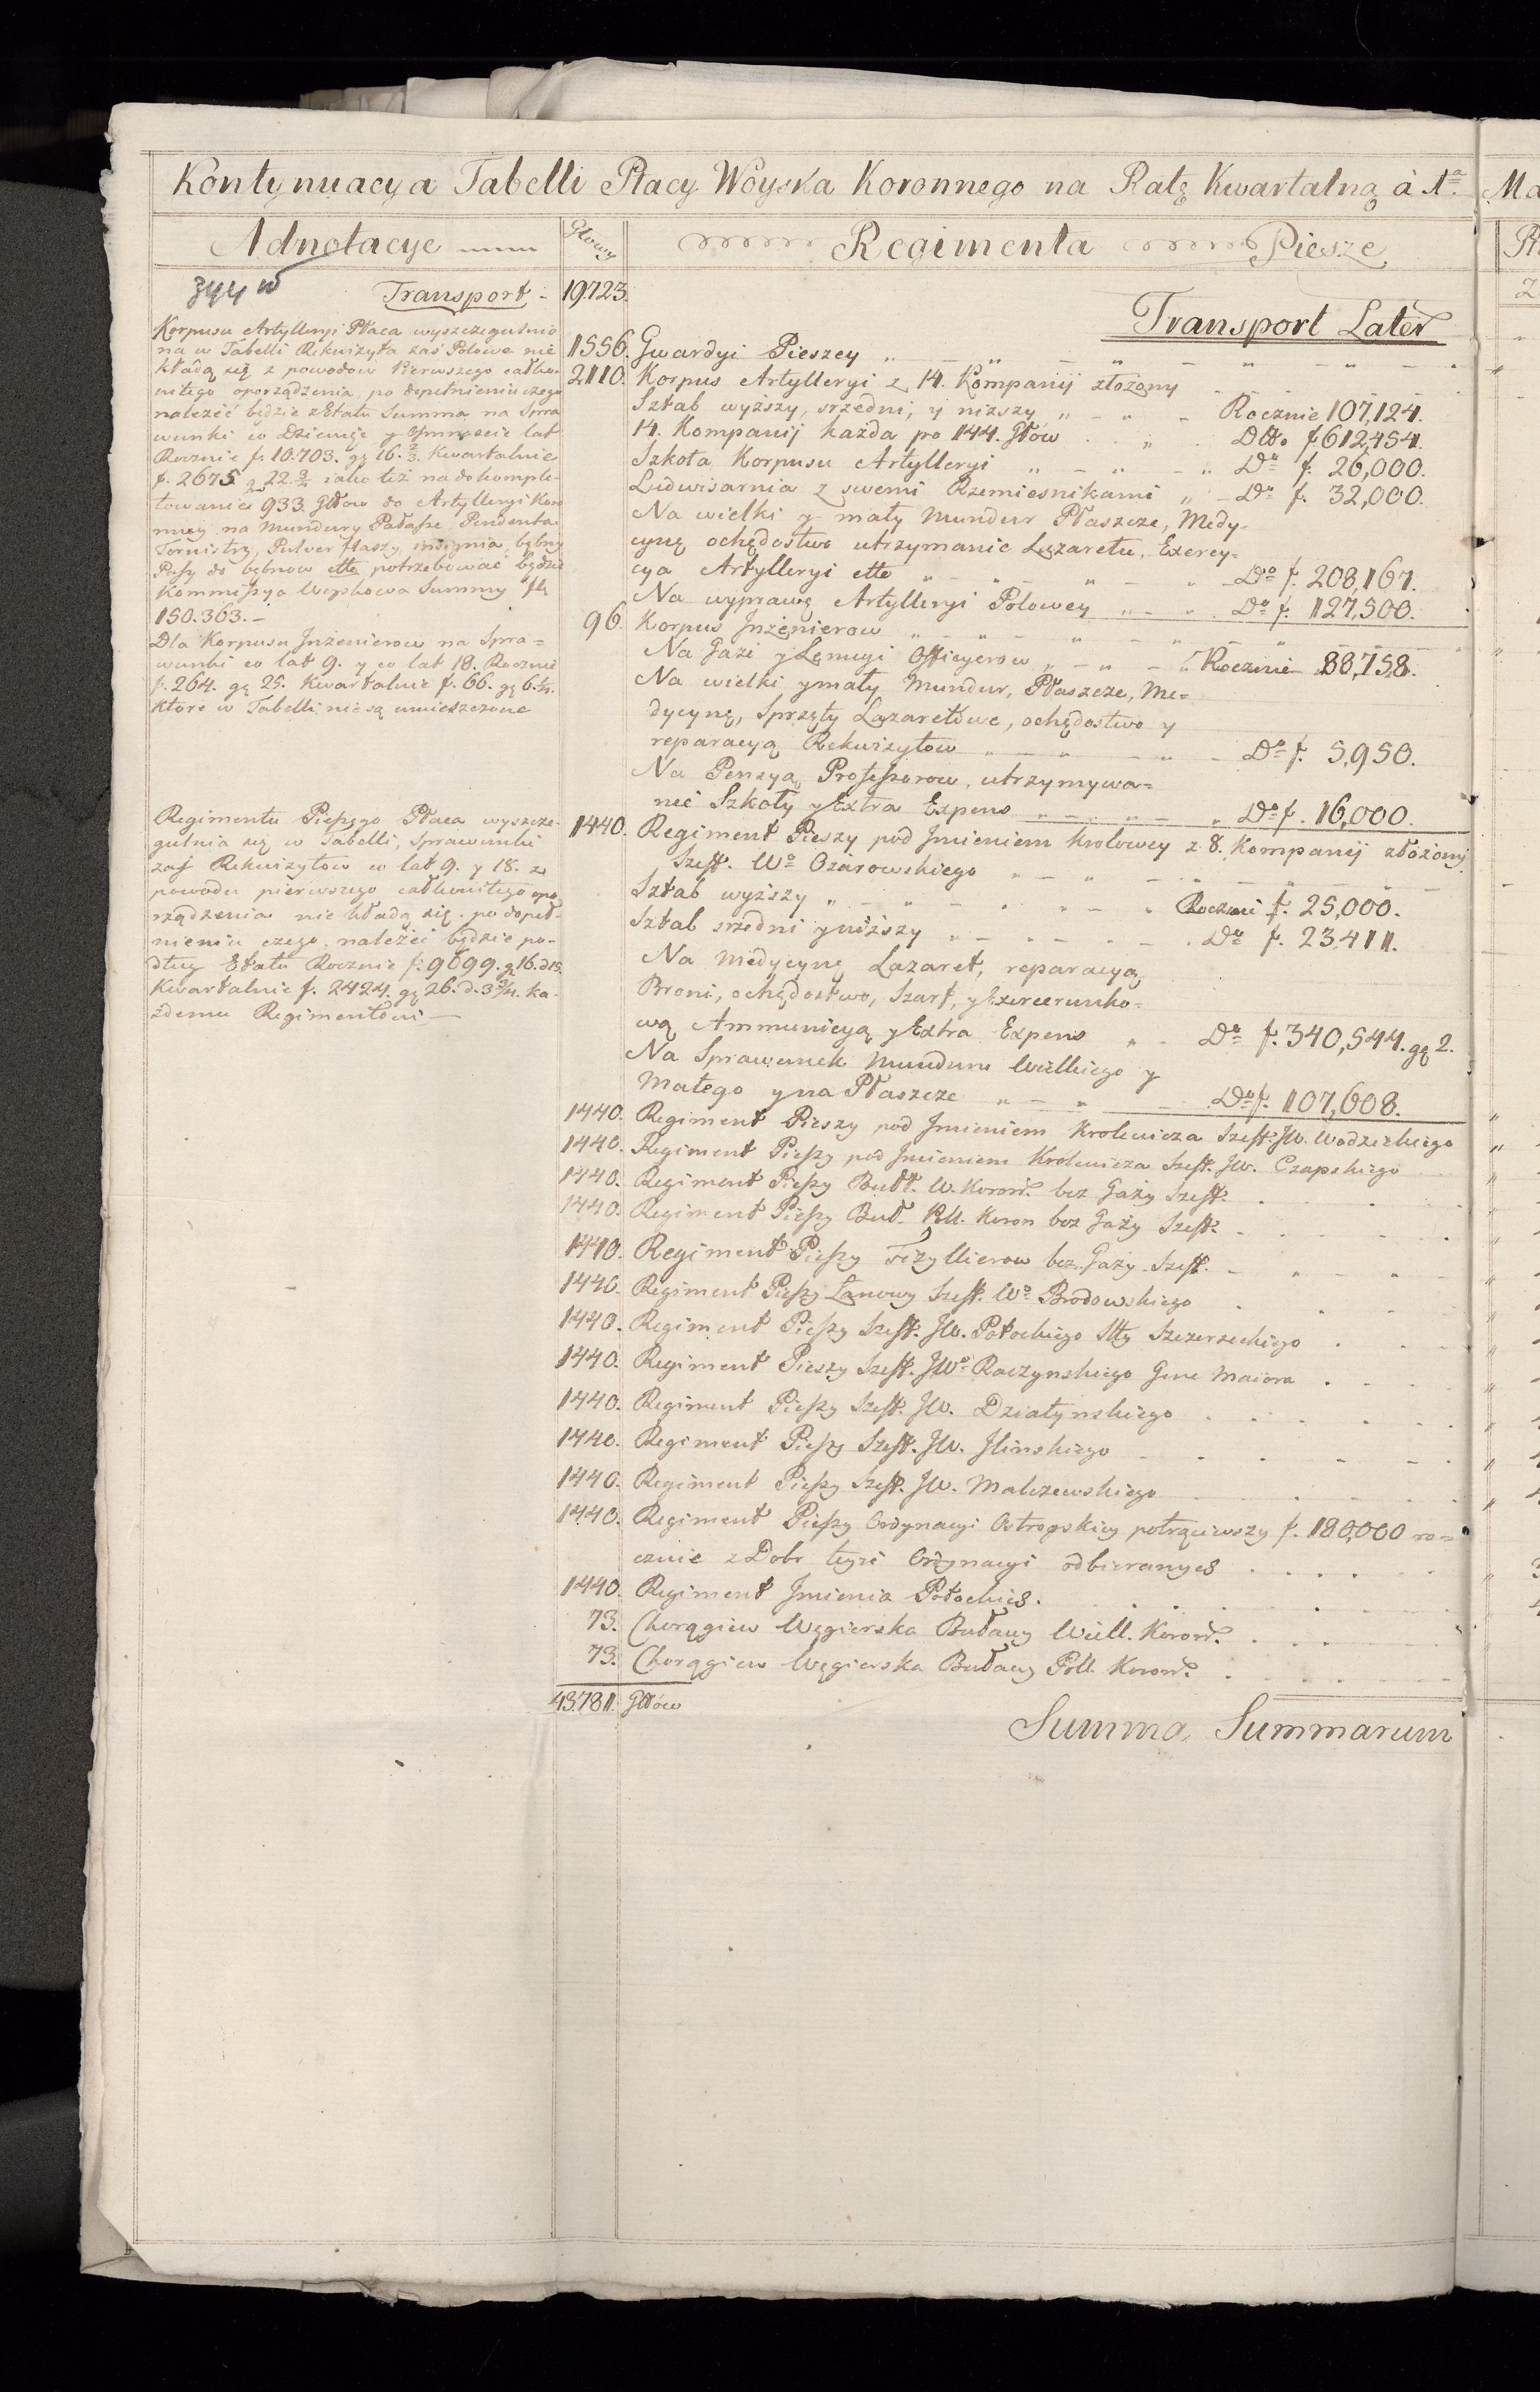 Kontynuacya Tabelli Płacy Woyska Koronnego na Ratę Kwartalną à 1ª
Adnotacye
Głowy
Regimenta Piesze
344 w
Transport - 19723.
Transport Later
Korpusu Artylleryi Płaca wyszczegulnio
na w Tabelli Rekwizyta zaś Polowe nie
kładą się z powodow Pierwszego całko-
witego oporządzenia, po depełnieniu czego
należić będzie z Etatu Summa na Spra
wunki co Dziewięć y Ośmnaście lat
Rocznie f. 10.703. gę 16. 2/3. Kwartalnie
f. 2675 g 22. iako też na dokomple-
towanie 933. Głow do Artylleryi Kon
nney na Mundury Pałasze, Pendenta
Tornistry, Pulver flaszy, insignia, bębny
Pasy do bębnow ette potrzebować będzie
Kommissya Woyskowa Summy fl.
150.363.-
Dla Korpusu Inżenierow na Spra=
wunki co lat 9. y co lat 18. Rocznie
f. 264. gę 25. Kwartalnie f. 66. gę 6.¼.
ktore w Tabelli nie są umieszczone
Regimentu Pieszego Płaca wyszcze-
gulnia się w Tabelli, Sprawunki
zaś Rekwizytow co lat 9. y 18. z
powodu pierwszego całkowitego opo
rządzenia nie kładą się. po dopeł-
nieniu czego, należeć będzie po-
dług Etatu Rocznie f. 9699. g 16. d 15
Kwartalnie f. 2424. gę 26. d. 3¾. ka-
żdemu Regimentowi —
1556. Gwardyi Pieszey
2110. Korpus Artylleryi z 14. Kompanij złożony
Sztab wyższy, srzedni, y niższy Rocznie 107,124.
14. Kompanij każda po 144. Głow Dtto f 612,454.
Szkoła Korpusu Artylleryi Do f. 26,000.
Ludwisarnia z swemi Rzemiesnikami Do f. 32,000.
Na wielki y mały Mundur Płaszcze, Medy-
cynę ochędostwo utrzymanie Lazaretu, Exercy=
cya Artylleryi ette Do f. 208,167.
Na wyprawę Artylleryi Polowey Do f. 127,500.
96. Korpus Inżenierow
Na Gażi y Lenugi Officyerow Rocznie 88,758.
Na wielki y mały Mundur, Płaszcze, Me=
dycynę, Sprzęty Lazaretowe, ochędostwo y
reparacyą Rekwizytow Do f. 5,950.
Na Pensyą Professorow, utrzymywa=
nie Szkoły y Extra Expens Do f. 16,000.
1440. Regiment Pieszy pod Imieniem Krolowey z 8. Kompanij złożony
Szeff. Wo Ożarowskiego
Sztab wyższy Rocznie f. 25,000.
Sztab srzedni y niższy Do f. 23411.
Na Medycynę Lazaret, reparacyą
Broni, ochędostwo, Szarf, y Exercerunko=
wą Ammunicyą y Extra Expens Do f. 340,544. gę 2.
Na Sprawunek Munduru Wielkiego y
Małego y na Płaszcze Do f. 107,608.
1440. Regiment Pieszy pod Imieniem Krolewicza Szeff. JW. Wodzickiego
1440. Regiment Pieszy pod Imieniem Krolewicza Szeff. JW. Czapskiego
1440. Regiment Pieszy Buł. W. Koron. bez Gaży Szeff.
1440. Regiment Pieszy Buł. Pol. Koron bez Gaży Szeff.
1440. Regiment Pieszy Fizyllierow bez Gaży Szeff.
1440. Regiment Pieszy Łanowy Szeff. Wo Brodowskiego
1440. Regiment Pieszy Szeff. JW. Potockiego Stty Szczerzeckiego
1440. Regiment Pieszy Szeff. JWo Raczynskiego Gene Maiora
1440. Regiment Pieszy Szeff. JW. Działynskiego
1440. Regiment Pieszy Szeff. JW. Ilinskiego
1440. Regiment Pieszy Szeff. JW. Malczewskiego
1440. Regiment Pieszy Ordynacyi Ostrogskiey potrąciwszy f. 180,000 ro=
cznie z Dobr teyże Ordynacyi odbieranych
1440. Regiment Imienia Potockich.
73. Chorągiew Węgierska Buławy Wiell. Koron.
73. Chorągiew Węgierska Buławy Poll. Koron.
43781. Głow
Summa Summarum